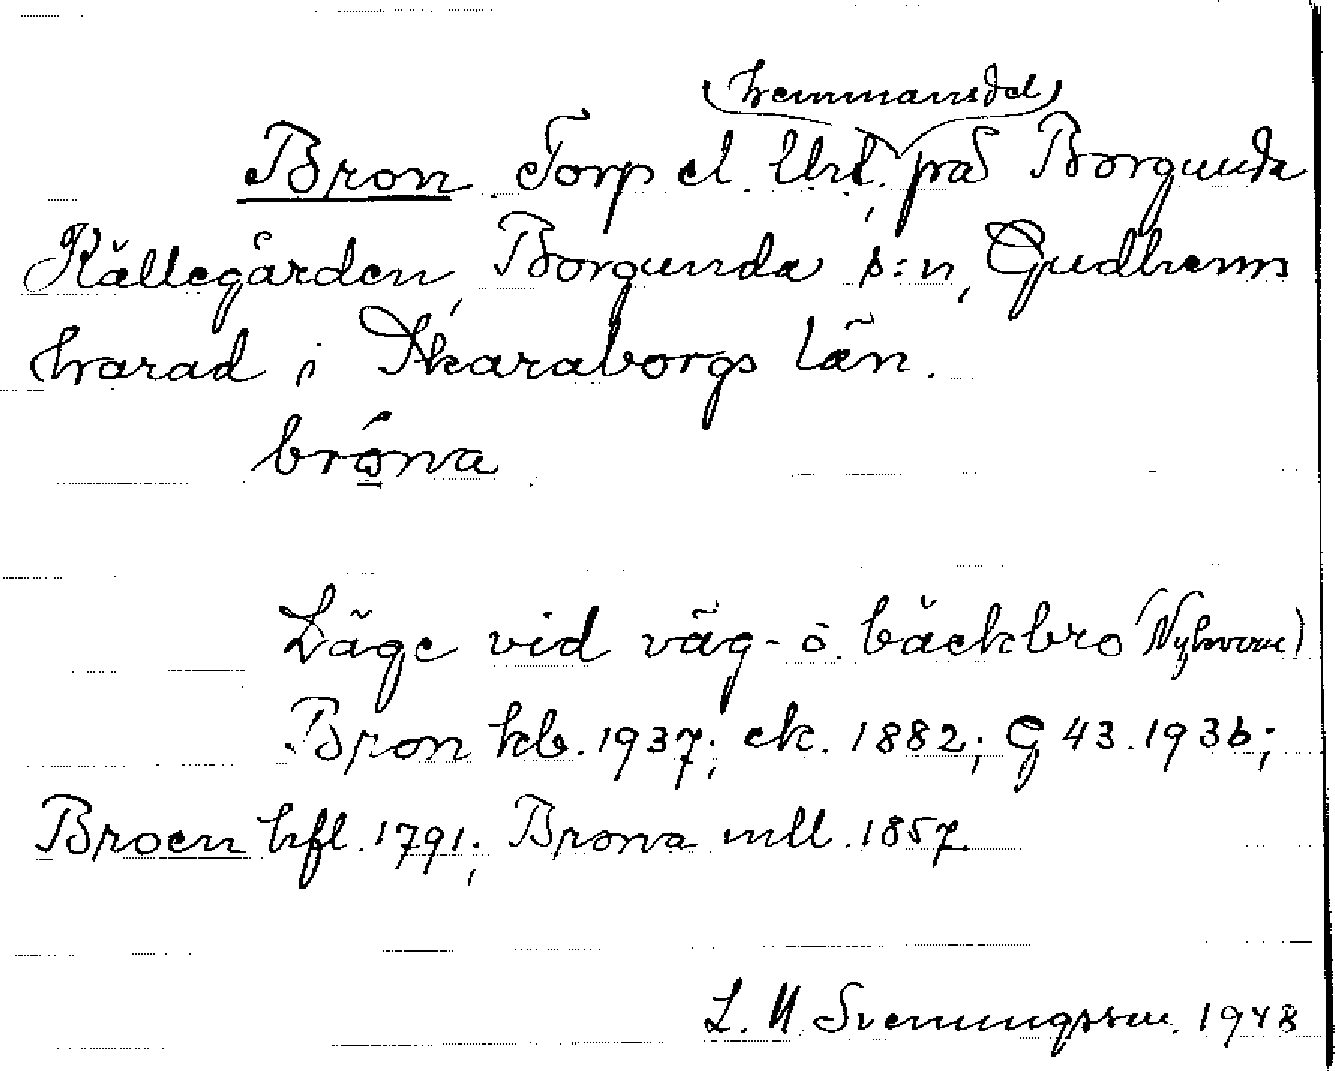 (hemmansdel)
Bron Torp el. Uhrt. på Borgunda
Källegården, Borgunda s:n, Gudhems
harad i Skaraborgs län.
bróna
Läge vid väg- o. bäckbro
Bron kb. 1937; ek. 1882; G 43. 1936;
Broen hfl. 1791; Brona mll. 1857.
L. M Svenungsson. 1948